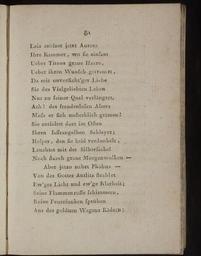 82
Leis entfloh jetzt Aurora
Ihre Kammer, wo sie einsam
Ueber Titons graue Haare,
Ueber ihren Wunsch getrauert,
Da mit unverständ'ger Liebe
Sie des Vielgeliebten Leben
Nur zu seiner Qual verlängert.
Ach! des freudenlosen Alters
Muß er sich unsterblich grämen!
Sie entfaltet dann im Osten
Ihren saffrangelben Schleyer;
Heller, den sie bald verdunkelt,
Leuchtet mit der Silberfackel
Noch durch graue Morgenwolken —
Aber jetzo nahet Phöbus —
Von des Gottes Antlitz strahlet
Ew'ges Licht und ew'ge Klarheit;
Seine Flammenrosse schimmern,
Seine Feuerfunken sprühen
Aus des goldnen Wagens Rädern;